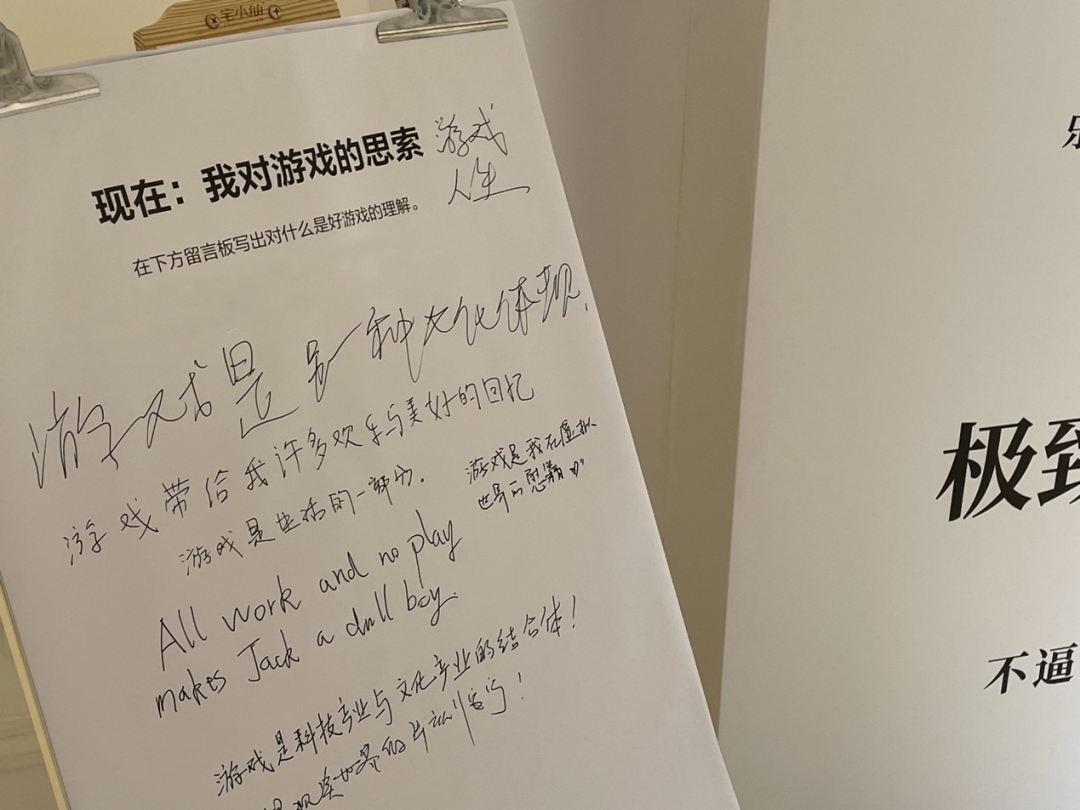 宅小仙
现在：我对游戏的思索
游戏
人生
在下方留言板写出对什么是好游戏的理解。
游戏是另一种文化体现.
游戏带给我许多欢乐与美好的回忆
游戏是生活的一部分.
游戏是我在虚拟
世界的慰藉
All work and no play
makes Jack a dull boy.
游戏是科技产业与文化产业的结合体！
现实世界的片刻
乐
极致
不逼